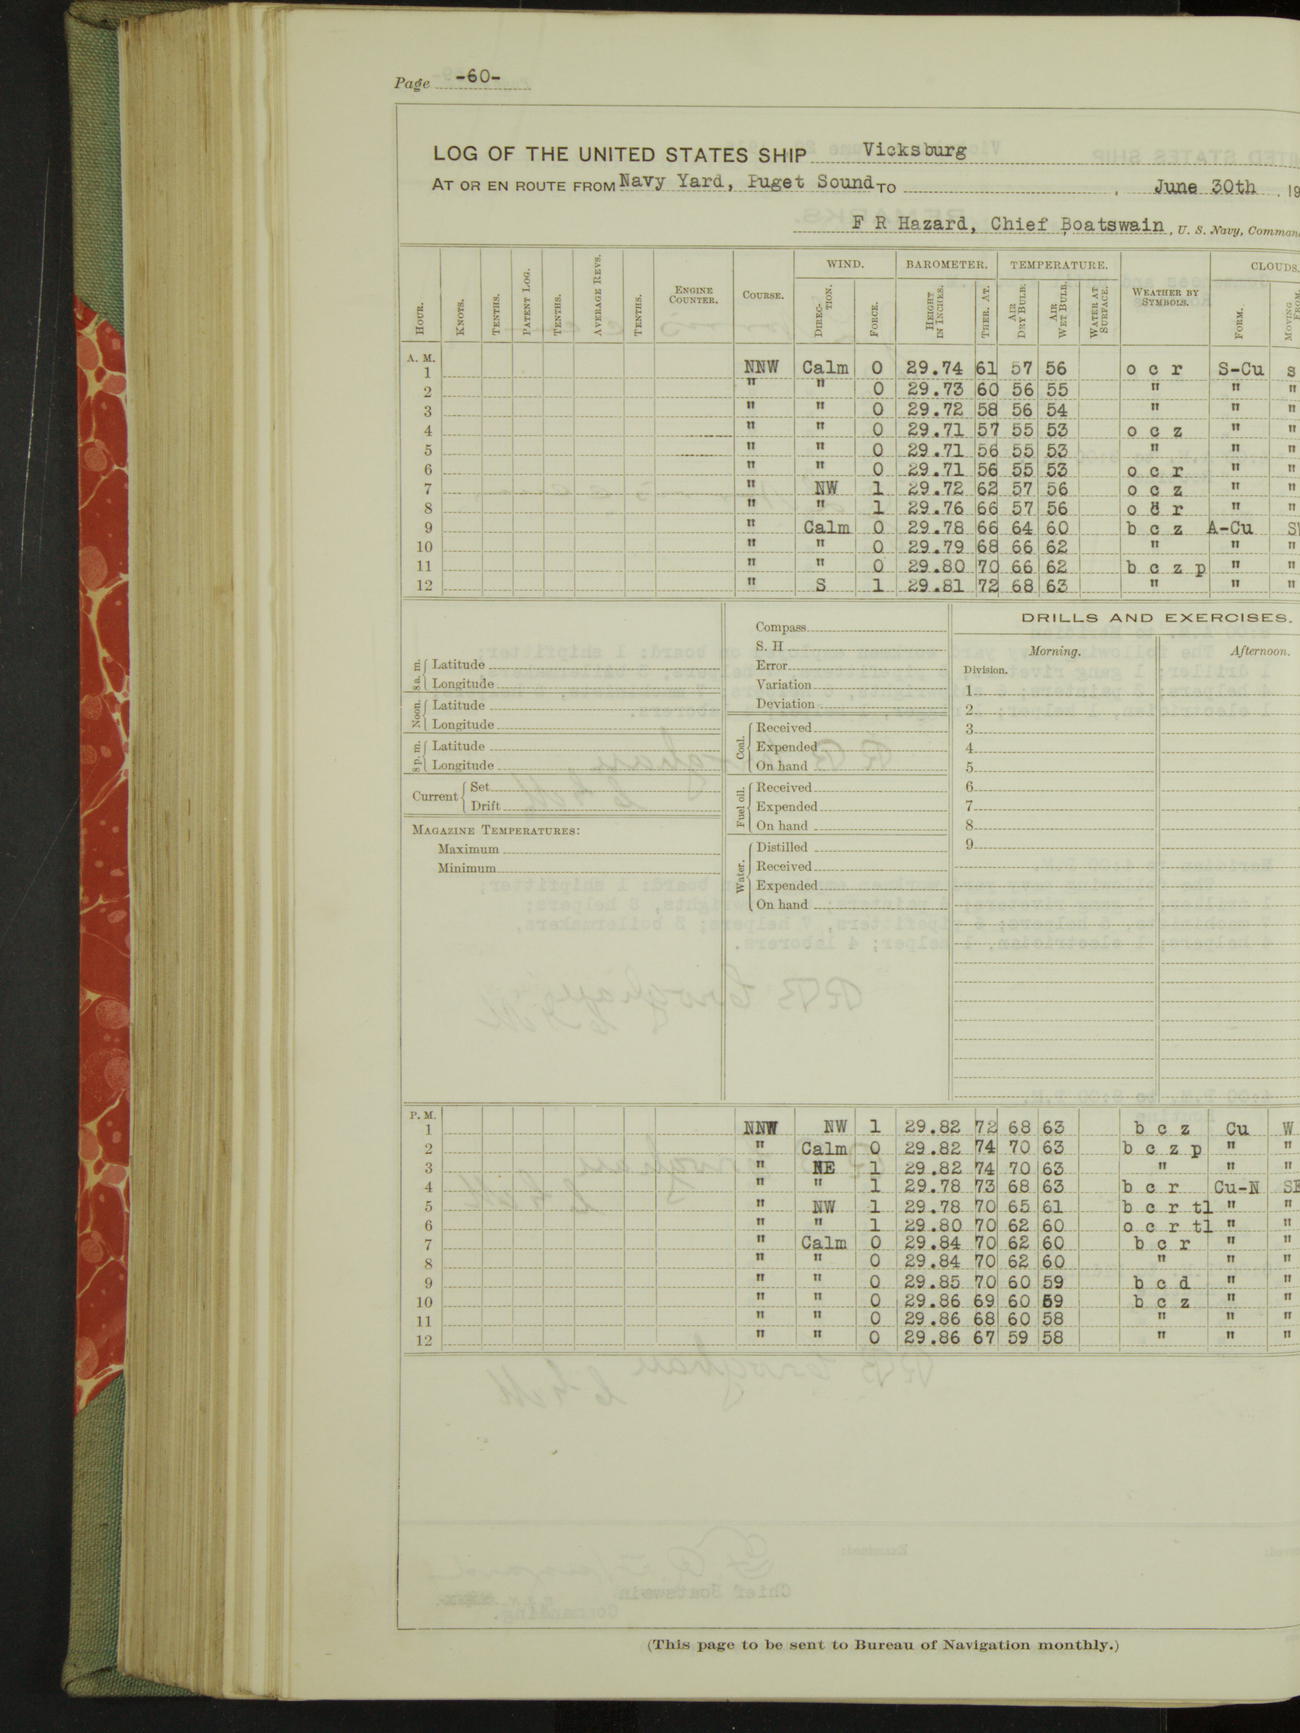 Page -60-
LOG OF THE UNITED STATES SHIP Vicksburg
AT OR EN ROUTE FROM Navy Yard, Puget Sound TO , June 30th , 19
F R Hazard, Chief Boatswain, U. S. Navy, Comman
WIND. BAROMETER. TEMPERATURE. CLOUDS.
HOUR. KNOTS. TENTHS. PATENT LOG. TENTHS. AVERAGE REVS. TENTHS. ENGINE COUNTER. COURSE. DIREC-TION. FORCE. HEIGHT IN INCHES. THER. AT. AIR DRY BULB. AIR WET BULB. WATER AT SURFACE. WEATHER BY SYMBOLS. FORM. MOVING FROM.
A. M.
1 NNW Calm 0 29.74 61 57 56 o c r S-Cu S
2 " " 0 29.73 60 56 55 " " "
3 " " 0 29.72 58 56 54 " " "
4 " " 0 29.71 57 55 53 o c z " "
5 " " 0 29.71 56 55 53 " " "
6 " " 0 29.71 56 55 53 o c r " "
7 " NW 1 29.72 62 57 56 o c z " "
8 " " 1 29.76 66 57 56 o r " "
9 " Calm 0 29.78 66 64 60 b c z A-Cu S
10 " " 0 29.79 68 66 62 " " "
11 " " 0 29.80 70 66 62 b c z p " "
12 " S 1 29.81 72 68 63 " " "
8 a. m. Latitude
Longitude
Noon. Latitude
Longitude
8 p. m. Latitude
Longitude
Current Set
Drift
MAGAZINE TEMPERATURES:
Maximum
Minimum
Compass
S. H
Error
Variation
Deviation
Coal. Received
Expended
On hand
Fuel oil. Received
Expended
On hand
Water. Distilled
Received
Expended
On hand
DRILLS AND EXERCISES.
Morning. Afternoon.
Division.
1
2
3
4
5
6
7
8
9
P. M.
1 NNW NW 1 29.82 72 68 63 b c z Cu W
2 " Calm 0 29.82 74 70 63 b c z p " "
3 " NE 1 29.82 74 70 63 " " "
4 " " 1 29.78 73 68 63 b c r Cu-N SE
5 " NW 1 29.78 70 65 61 b c r tl " "
6 " " 1 29.80 70 62 60 o c r tl " "
7 " Calm 0 29.84 70 62 60 b c r " "
8 " " 0 29.84 70 62 60 " " "
9 " " 0 29.85 70 60 59 b c d " "
10 " " 0 29.86 69 60 59 b c z " "
11 " " 0 29.86 68 60 58 " " "
12 " " 0 29.86 67 59 58 " " "
(This page to be sent to Bureau of Navigation monthly.)